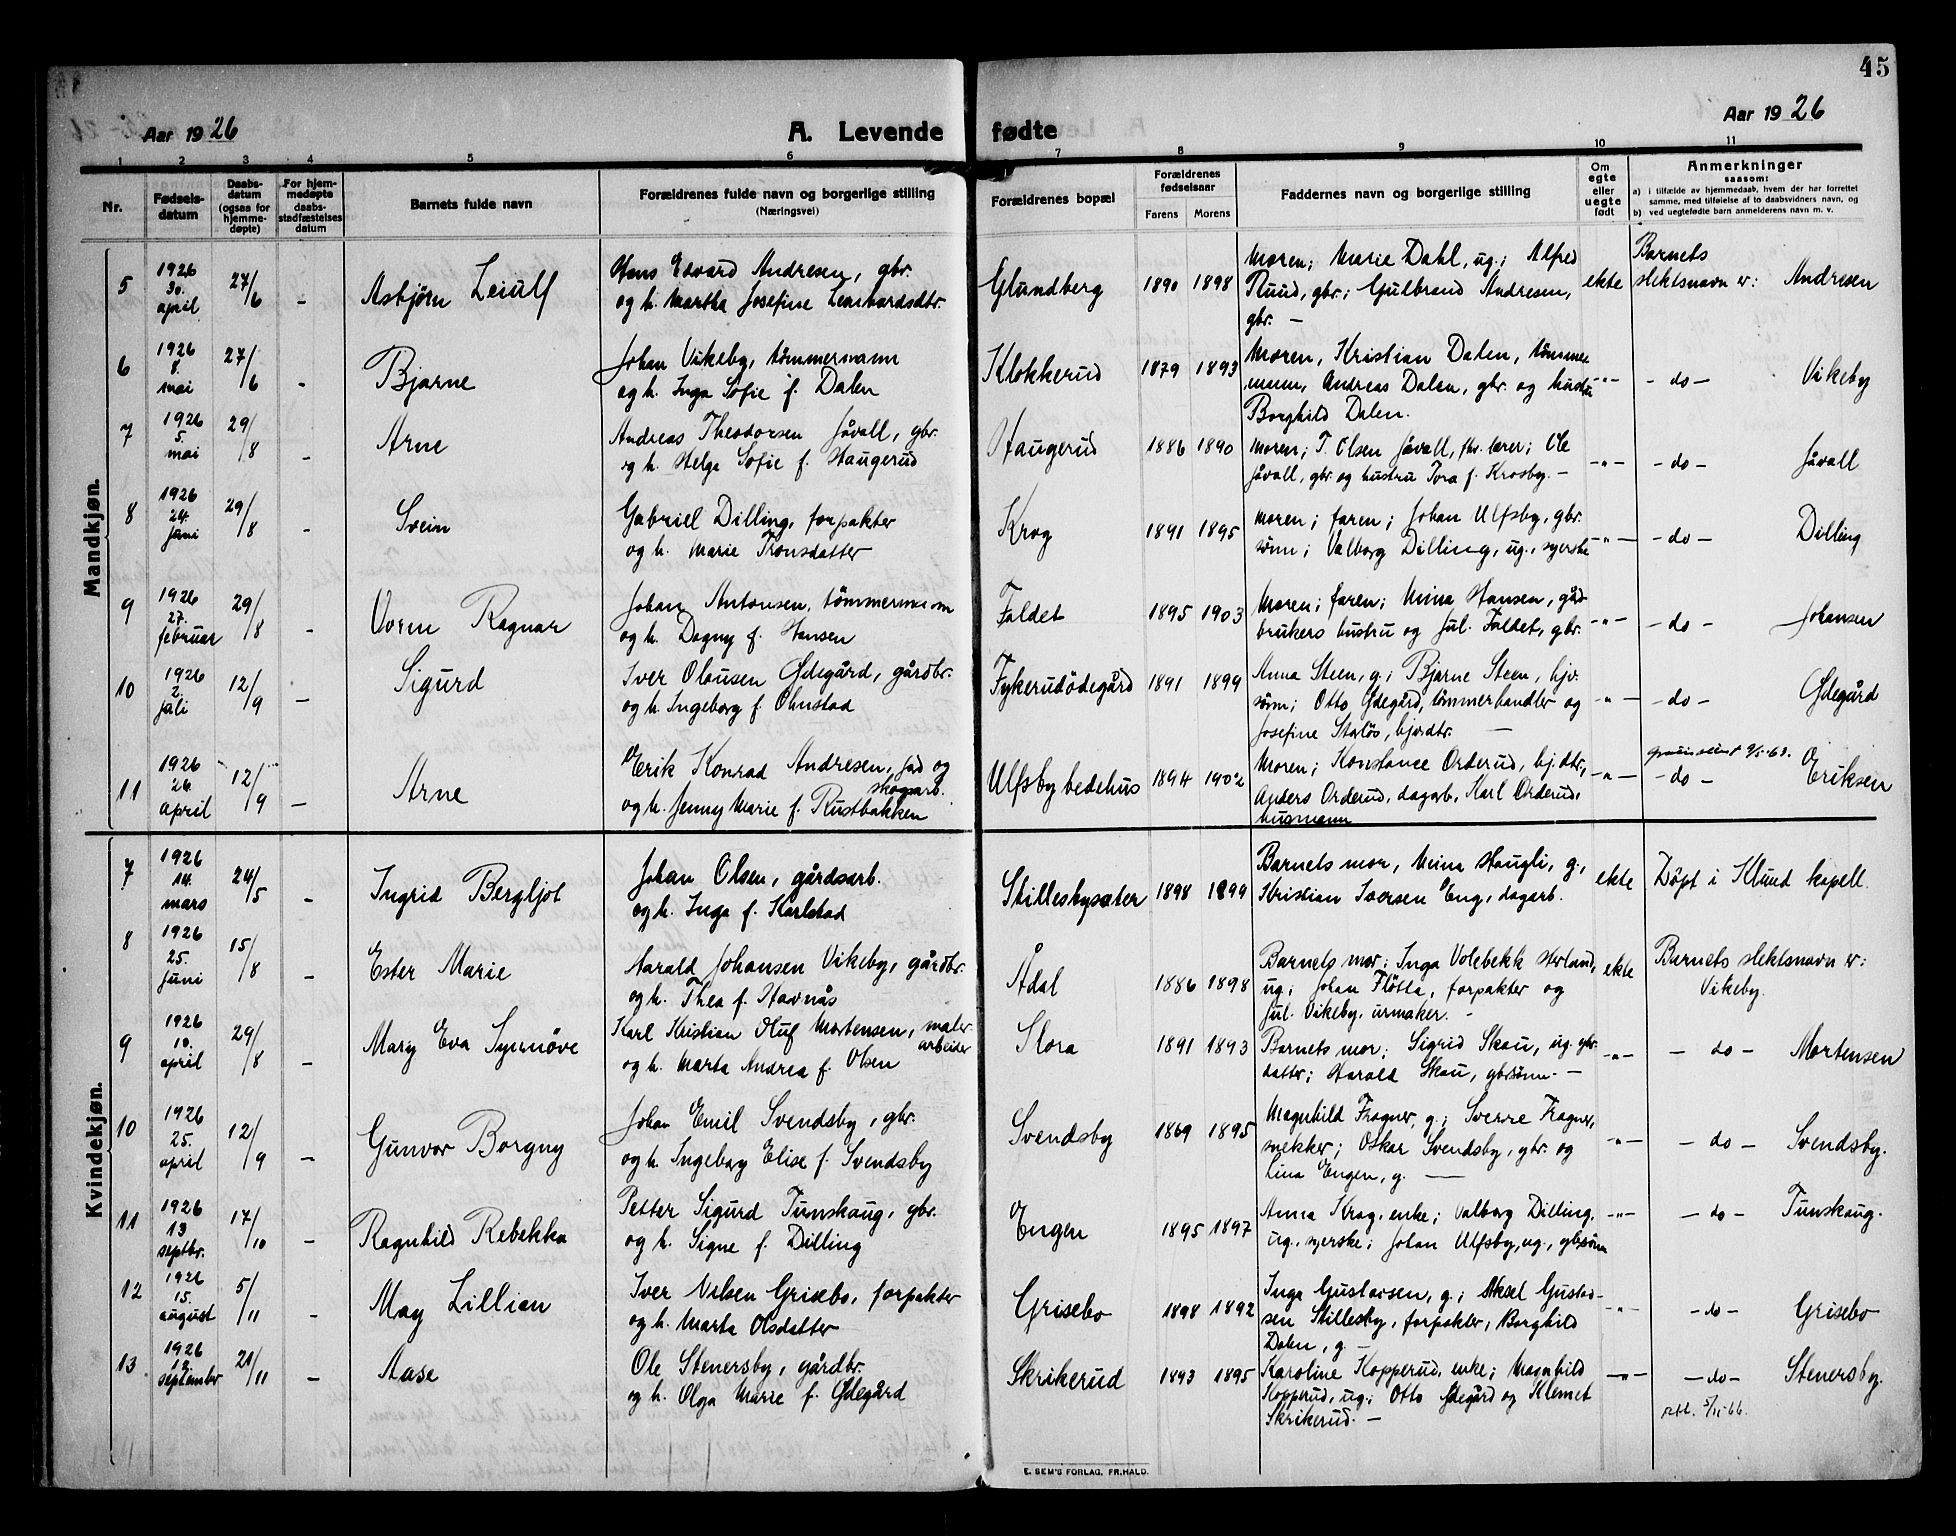 45
Aar 1926
A. Levende fødte
Aar 1926
1 2 3 4 5 6 7 8 9 10 11
Nr.
Fødsels-
datum
Daabs-
datum
(ogsaa for
hjemme-
døpte)
For hjem-
medøpte
daabs-
stadfæstelses
datum
Barnets fulde navn
Forældrenes fulde navn og borgerlige stilling
(Næringsvei)
Forældrenes bopæl
Forældrenes
fødselsaar
Farens Morens
Faddernes navn og borgerlige stilling
Om
egte
eller
uegte
født
Anmerkninger
saasom:
a) i tilfælde av hjemmedaab, hvem der har forrettet
samme, med tilføielse af to daabsvidners navn, og
b) ved uegtefødte barn anmelderens navn m. v.
Mandkjøn.
5
1926
30.
april
27/6
-
Asbjørn Leiulf
Hans Edvard Andresen, gbr.
og h. Martha Josefine Lennhardsdtr.
Glundberg
1890 1898
Moren; Marie Dahl, ug.; Alfred
Ruud, gbr.; Gulbrand Andresen,
gbr. -
ekte
Barnets
slektsnavn er: Andresen
6
1926
8.
mai
27/6
-
Bjarne
Johan Vikeby, tømmermann
og h. Inga Sofie f. Dalen
Klokkerud
1879 1893
Moren, Kristian Dalen, tømmer
mann, Andreas Dalen, gbr. og hustru
Borghild Dalen.
-"-
- do - Vikeby
7
1926
5.
mai
29/8
-
Arne
Andreas Theodorsen Jåvall, gbr.
og h. Helga Sofie f. Haugerud
Haugerud
1886 1890
Moren; T. Olsen Jåvall, fhv. lærer; Ole
Jåvall, gbr. og hustru Tora f. Krosby. -
-"-
- do - Jåvall
8
1926
24.
juni
29/8
-
Svein
Gabriel Dilling, forpakter
og h. Marie Tronsdatter
Krog
1891 1895
Moren; faren; Johan Ulfsby, gbr.
sønn; Valborg Dilling, ug., syerske
-"-
- do - Dilling
9
1926
27.
februar
29/8
-
Vorm Ragnar
Johan Antonsen, tømmermann
og h. Dagny f. Hansen
Faldet
1895 1903
Moren; faren; Mina Hansen, gård
brukers hustru og Jul. Faldet, gbr.
-"-
- do - Johansen
10
1926
2.
juli
12/9
-
Sigurd
Iver Olausen Ødegård, gårdbr.
og h. Ingeborg f. Ohnstad
Fykerudödegård
1891 1899
Anna Steen, g.; Bjarne Steen, bjv.
sønn; Otto Ødegård, tømmerhandler og
Josefine Starlös, bjørdtr. -
-"-
- do - Ødegård
11
1926
26.
april
12/9
-
Arne
Erik Konrad Andresen, jord og
skogsarb.
og h. Jenny Marie f. Rustbakken
Ulfsby bedehus
1894 1902
Moren; Konstance Orderud, bj.dtr,
Anders Orderud, dagarb. Karl Orderud,
husmann
-"-
- do - Eriksen
Kvindekjøn.
7
1926
14.
mars
24/5
Ingrid Bergljot
Johan Olsen, gårdsarb.
og h. Inga f. Karlstad
Stillesbysæter
1898 1899
Barnets mor, Mina Haugli, g.,
Kristian Iversen Eng, dagarb.
ekte
Døpt i Klund kapell.
8
1926
25.
juni
15/8
-
Ester Marie
Harald Johansen Vikeby, gårdbr.
og h. Thea f. Havnås
Ådal
1886 1898
Barnets mor; Inga Volebekk Herland,
ug; Johan Flötta, forpakter og
Jul. Vikeby, urmaker. -
ekte
Barnets slektsnavn er:
Vikeby.
9
1926
10.
april
29/8
-
Mary Eva Synnöve
Karl Kristian Oluf Mortensen, maler
arbeider
og h. Marta Andrea f. Olsen
Slora
1891 1893
Barnets mor; Sigrid Skau, ug. gbr.
datter; Harald Skau, gbrsönn. -
-"-
- do - Mortensen
10
1926
25.
april
12/9
-
Gunvor Borgny
Johan Emil Svendsby, gbr.
og h. Ingeborg Elise f. Svendsby
Svendsby
1869 1895
Magnhild Fragner, g.; Sverre Fragner,
snekker; Oskar Svendsby, gbr. og
Lina Engen, g. -
-"-
- do - Svendsby.
11
1926
13
septbr.
17/10
-
Ragnhild Rebekka
Petter Sigurd Tunskaug, gbr.
og h. Signe f. Dilling
Engen
1895 1897
Anna Krog, enke; Valborg Dilling,
ug., syerske; Johan Ulfsby, ug., gbrsönn
-"-
- do - Tunskaug.
12
1926
15.
august
5/11
-
May Lillian
Iver Nilsen Grisebo, forpakter
og h. Marta Olsdatter
Grisebo
1898 1892
Inga Gustavsen, g.; Aksel Gustav-
sen Stillesby, forpakter, Borghild
Dalen, g. -
-"-
- do - Grisebo
13
1926
12.
september
21/11
-
Aase
Ole Stenersby, gårdbr.
og h. Olga Marie f. Ødegård
Skrikerud
1893 1895
Karoline Kopperud, enke; Magnhild
Kopperud, ug.; Otto Ødegård og Klemet
Skrikerud. -
-"-
- do - Stenersby.
E. SEM'S FORLAG, FR.HALD.